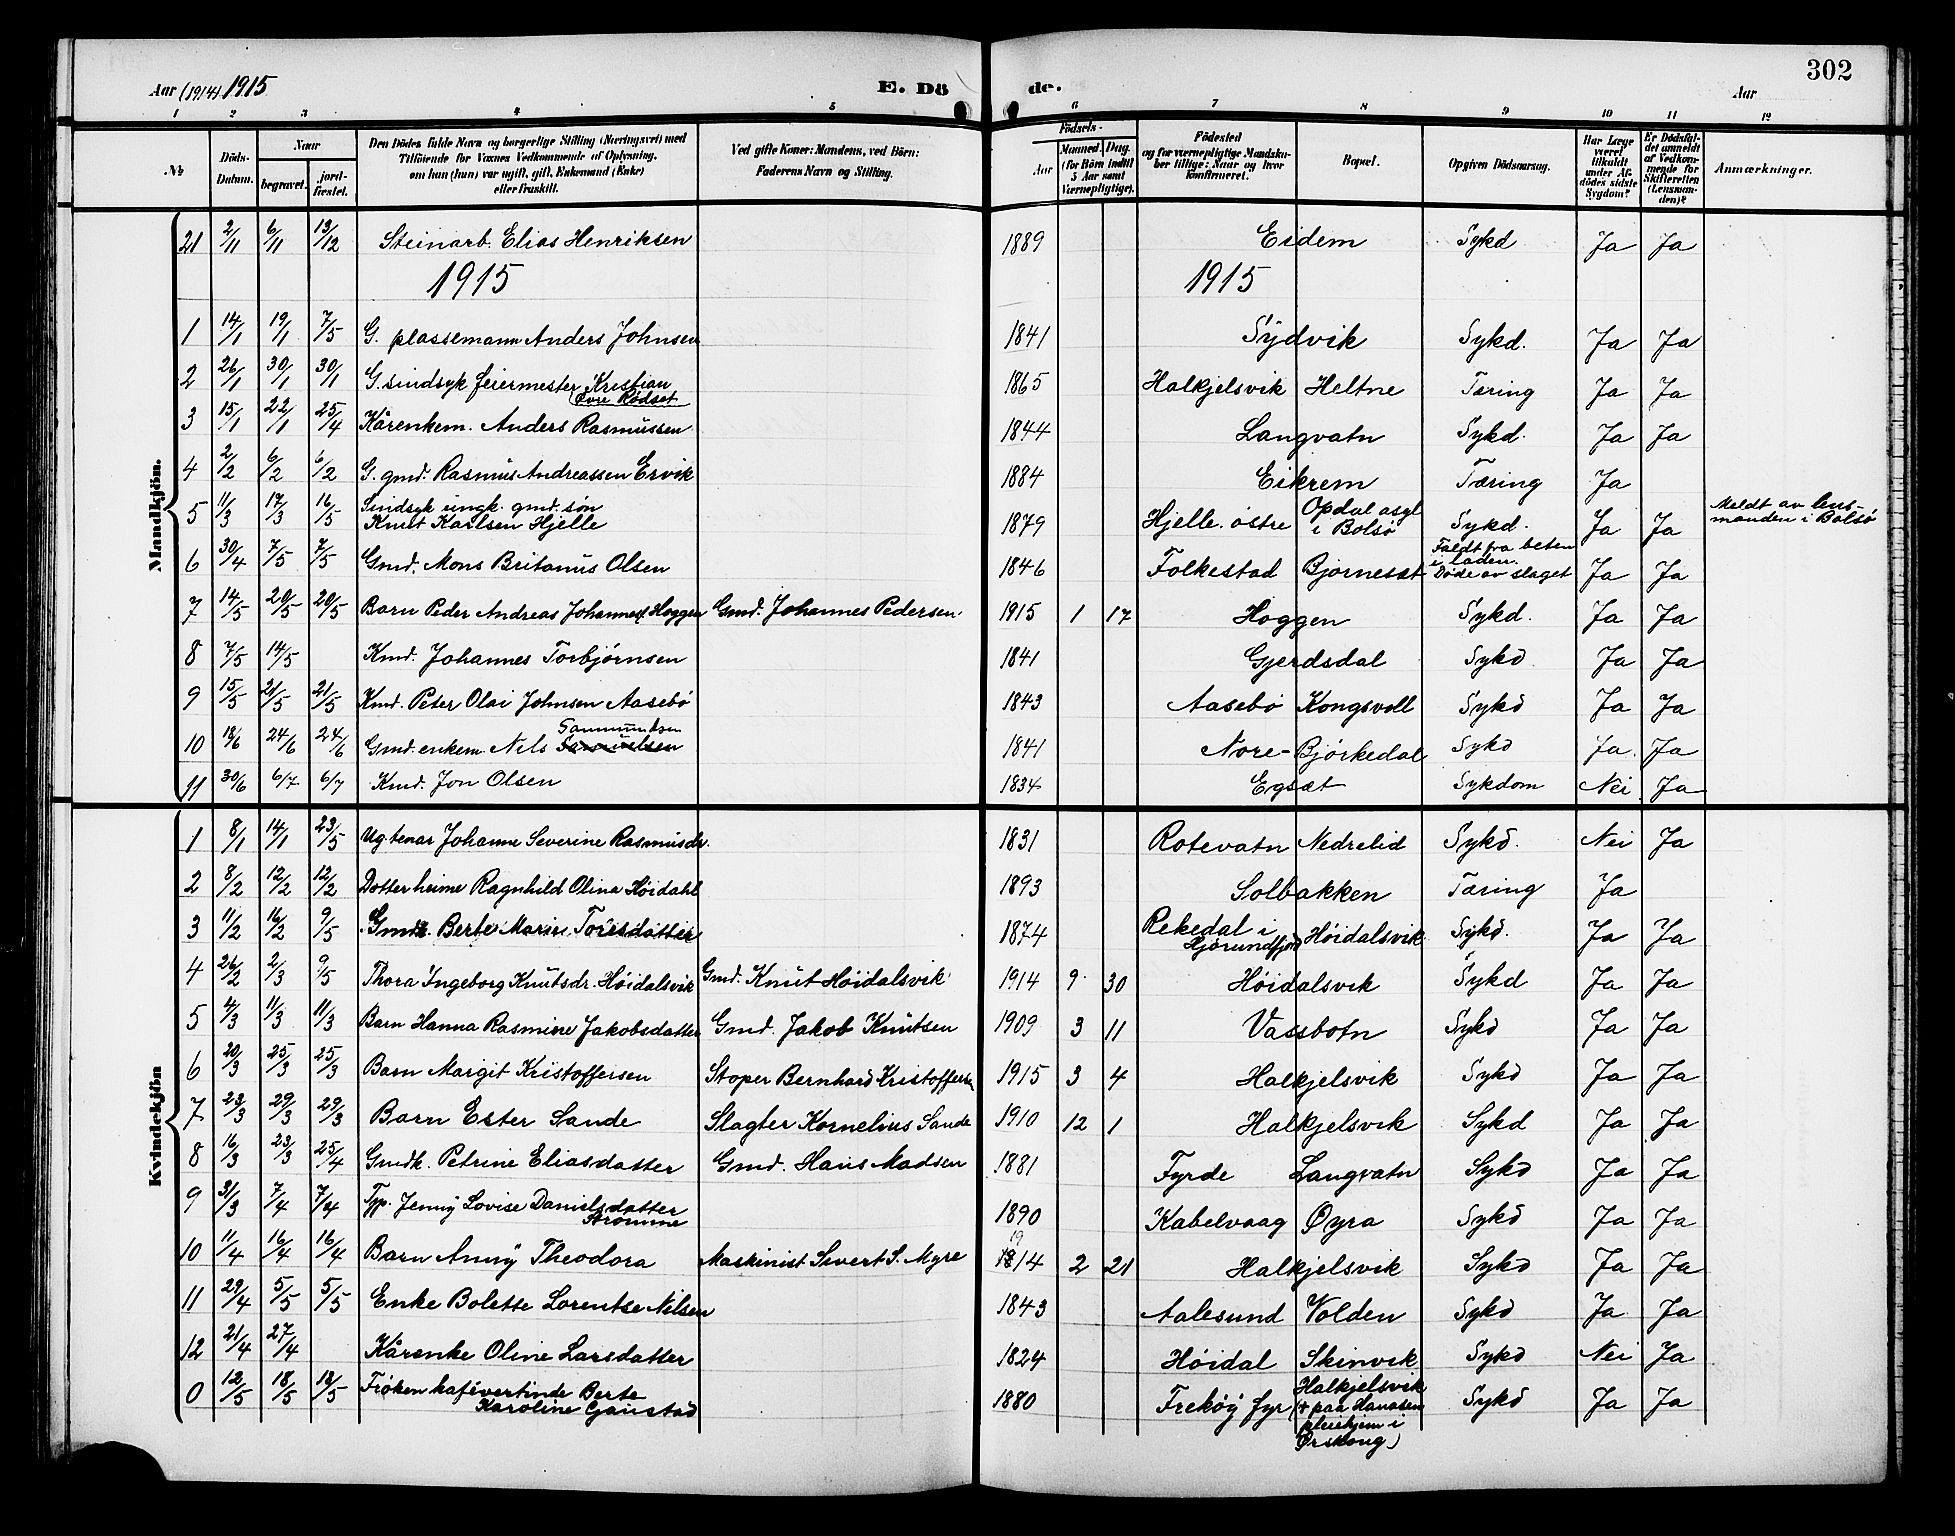 302
Aar (1914) 1915 E. Dö de. Aar
1 2 3 4 5 6 7 8 9 10 11 12
№ Döds-Datum. Naar begravet. jord-fæstet. Den Dödes fulde Navn og borgerlige Stilling (Næringsvei) med Tilföiende for Voxnes Vedkommende af Oplysning, om hun (han) var ugift, gift, Enkemand (Enke) eller fraskilt. Ved gifte Koner: Mandens, ved Börn: Faderens Navn og Stilling. Födsels- Aar Maaned. Dag. (for Börn indtil 5 Aar samt Værnepligtige). Födested og for værnepligtige Mandskaber tillige: Naar og hvor konfirmeret. Bopæl. Opgiven Dödsaarsag. Har Læge været tilkaldt under Afdödes sidste Sygdom? Er Dödsfaldet anmeldt af Vedkommende for Skifteretten (Lensmanden)? Anmærkninger.
Mandkjön.
21 2/11 6/11 13/12 Steinarb. Elias Henriksen 1889 Eidem Sykd Ja Ja
1915 1915
1 14/1 19/1 7/5 G. plassemann Anders Johnsen 1841 Sydvik Sykd. Ja Ja
2 26/1 30/1 30/1 G. sindsyk feiermester Kristian 1865 Halkjelsvik Heltne Tæring Ja Ja
(Øvre Rødset
3 15/1 22/1 25/4 Kårenkem. Anders Rasmussen 1844 Langvatn Sykd. Ja Ja
4 2/2 6/2 6/2 G. gmd. Rasmus Andreassen Ervik 1884 Eikrem Tæring Ja
5 11/3 17/3 16/5 Sindsyk ungk. gmd. søn
Knut Karlsen Hjelle 1879 Hjelle. østre Opdal asyl i Bolsø Sykd. Ja Ja Meldt av lens-
manden i Bolsø
6 30/4 7/5 7/5 Gmd. Mons Britanus Olsen 1846 Folkestad Bjørneset Faldt fra beten
i laden.
Døde av slaget Ja Ja
7 14/5 20/5 20/5 Barn Peder Andreas Johannes Hoggen Gmd. Johannes Pedersen. 1915 1 17 Hoggen Sykd. Ja Ja
8 7/5 14/5 Kmd. Johannes Torbjørnsen 1841 Gjerdsdal Sykd Ja Ja
9 15/5 21/5 21/5 Kmd. Peter Olai Johnsen Aasebø 1843 Aasebø Kongsvoll Sykd Ja Ja
Sammundsen
10 18/6 24/6 24/6 Gmd. enkem. Nils Samuelsen 1841 Nore-Bjørkedal Sykd Ja. Ja
11 30/6 6/7 6/7 Kmd. Jon Olsen 1834 Egsæt Sykdom Nei Ja
Kvindekjön
1 8/1 14/1 23/5 Ug. tenar Johanne Severine Rasmusdr. 1831 Rotevatn Nedrelid Sykd. Nei Ja
2 8/2 12/2 12/2 Dotter heime Ragnhild Olina Höidahl 1893 Solbakken Tæring Ja
3 11/2 16/2 9/5 Gmdk. Berte Marie Toresdatter 1874 Rekedal i
Hjørundfjord Höidalsvik Sykd. Ja Ja
4 26/2 2/3 9/5 Thora Ingeborg Knutsdr. Höidalsvik Gmd. Knut Höidalsvik 1914 9 30 Höidalsvik Sykd Ja Ja
5 4/3 11/3 11/3 Barn Hanna Rasmine Jakobsdatter Gmd. Jakob Knutsen 1909 3 11 Vassbotn Sykd Ja Ja
6 20/3 25/3 25/3 Barn Margit Kristoffersen Stoper Bernhard Kristoffersen 1915 3 4 Halkjelsvik Sykd Ja Ja
7 23/3 29/3 29/3 Barn Ester Sande Slagter Kornelius Sande 1910 12 1 Halkjelsvik Sykd Ja Ja
8 16/3 23/3 25/4 Gmdk. Petrine Eliasdatter Gmd. Hans Madsen 1881 Fyrde Langvatn Sykd Ja Ja
9 31/3 7/4 7/4 Typ. Jenny Lovise Danielsdatter
Strømme 1890 Kabelvaag Øyra Sykd Ja Ja
19
10 11/4 16/4 16/4 Barn Anny Theodora Maskinist Sivert S. Myre 1814 2 21 Halkjelsvik Sykd Ja Ja
11 29/4 5/5 5/5 Enke Bolette Lorentse Nilsen 1843 Aalesund Volden Sykd Ja Ja
12 21/4 27/4 Kårenke Oline Larsdatter 1824 Höidal Skinvik Sykd Nei Ja
0 12/5 18/5 18/5 Frøken kafévertinde Berte
Karoline Gaustad 1880 Frekøy fyr Halkjelsvik
(+ paa Hanasen
pleiehjem i
Ørskoug) Sykd Ja Ja